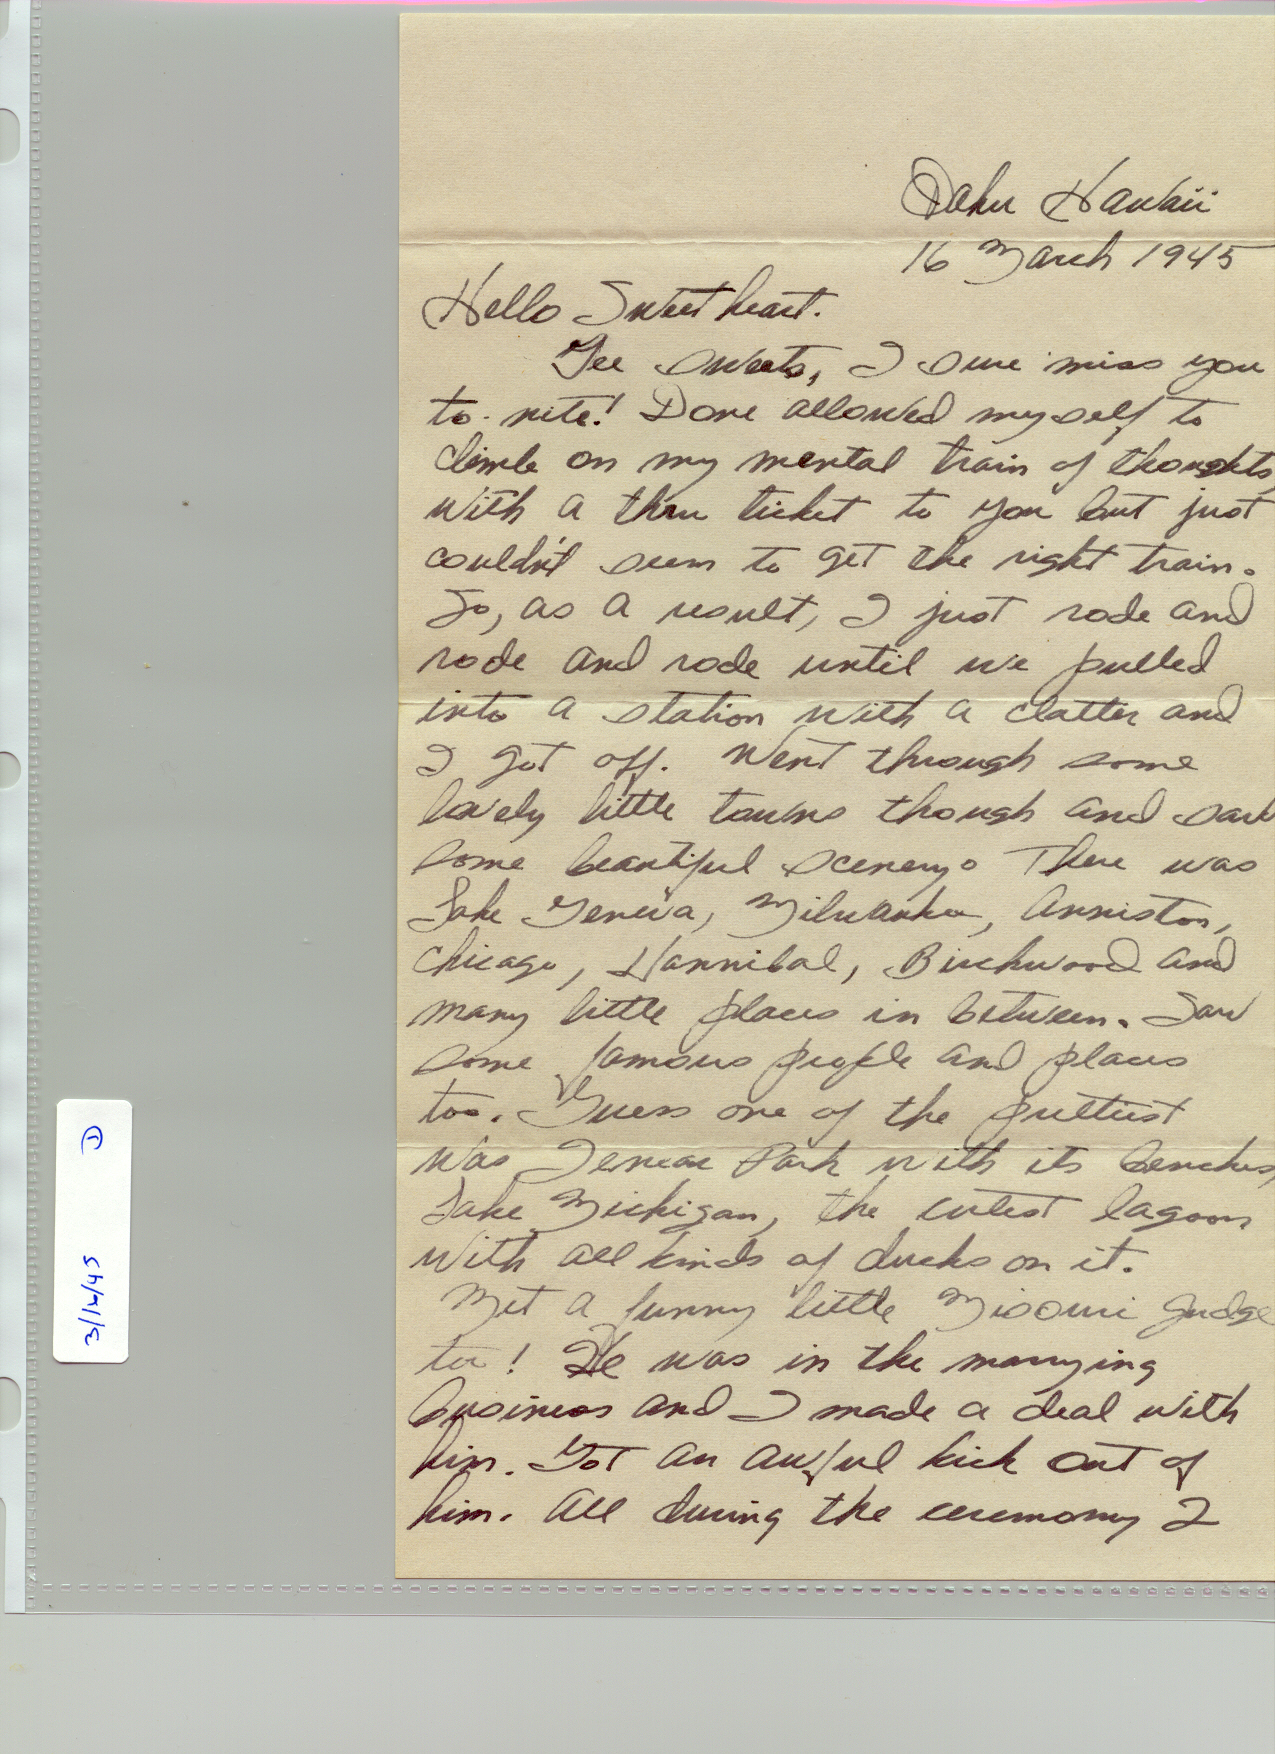 Oahu Hawaii
16 March 1945
Hello Sweetheart.
Gee sweets, I sure miss you
to-nite! Done allowed myself to
climb on my mental train of thoughts
with a thru ticket to you but just
couldn't seem to get the right train.
So, as a result, I just rode and
rode and rode until we pulled
into a station with a clatter and
I got off. Went through some
lovely little towns though and saw
some beautiful scenery. There was
Lake Geneva, Milwaukee, Anniston,
Chicago, Hannibal, Birchwood and
many little places in between. Saw
some famous people and places
too. Guess one of the prettiest
was Juneau Park with its benches,
Lake Michigan, the cutest lagoon
with all kinds of ducks on it.
Met a funny little Misouri Judge
too! He was in the marrying
business and I made a deal with
him. Got an awful kick out of
him. All during the ceremony I
3/16/45 1